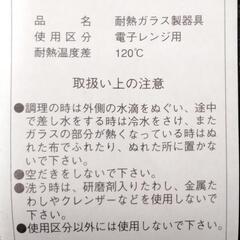 品名 耐熱ガラス製器具
使用区分 電子レンジ用
耐熱温度差 120℃
取扱い上の注意
●調理の時は外側の水滴をぬぐい、途中
で差し水をする時は冷水をさけ、また
ガラスの部分が熱くなっている時はぬ
れた布でふれたり、ぬれた所に置かな
いで下さい。
●空だきをしないで下さい。
●洗う時は、研磨剤入りたわし、金属た
わしやクレンザーなどを使用しないで
下さい。
●使用区分以外には使用しないで下さい。